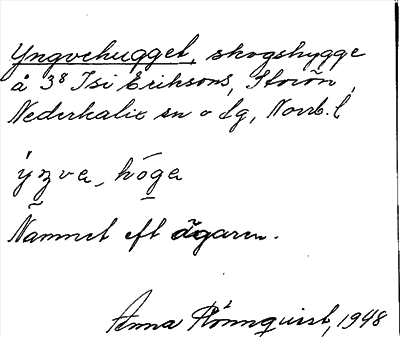 Yngvehugget, skogshygge
å 3⁸ Isi Eriksons, Storön,
Nederkalix sn o dg, Norrb. l
ýzva - hóga
Namnet eft ägaren.
Anna Rönnquist, 1948